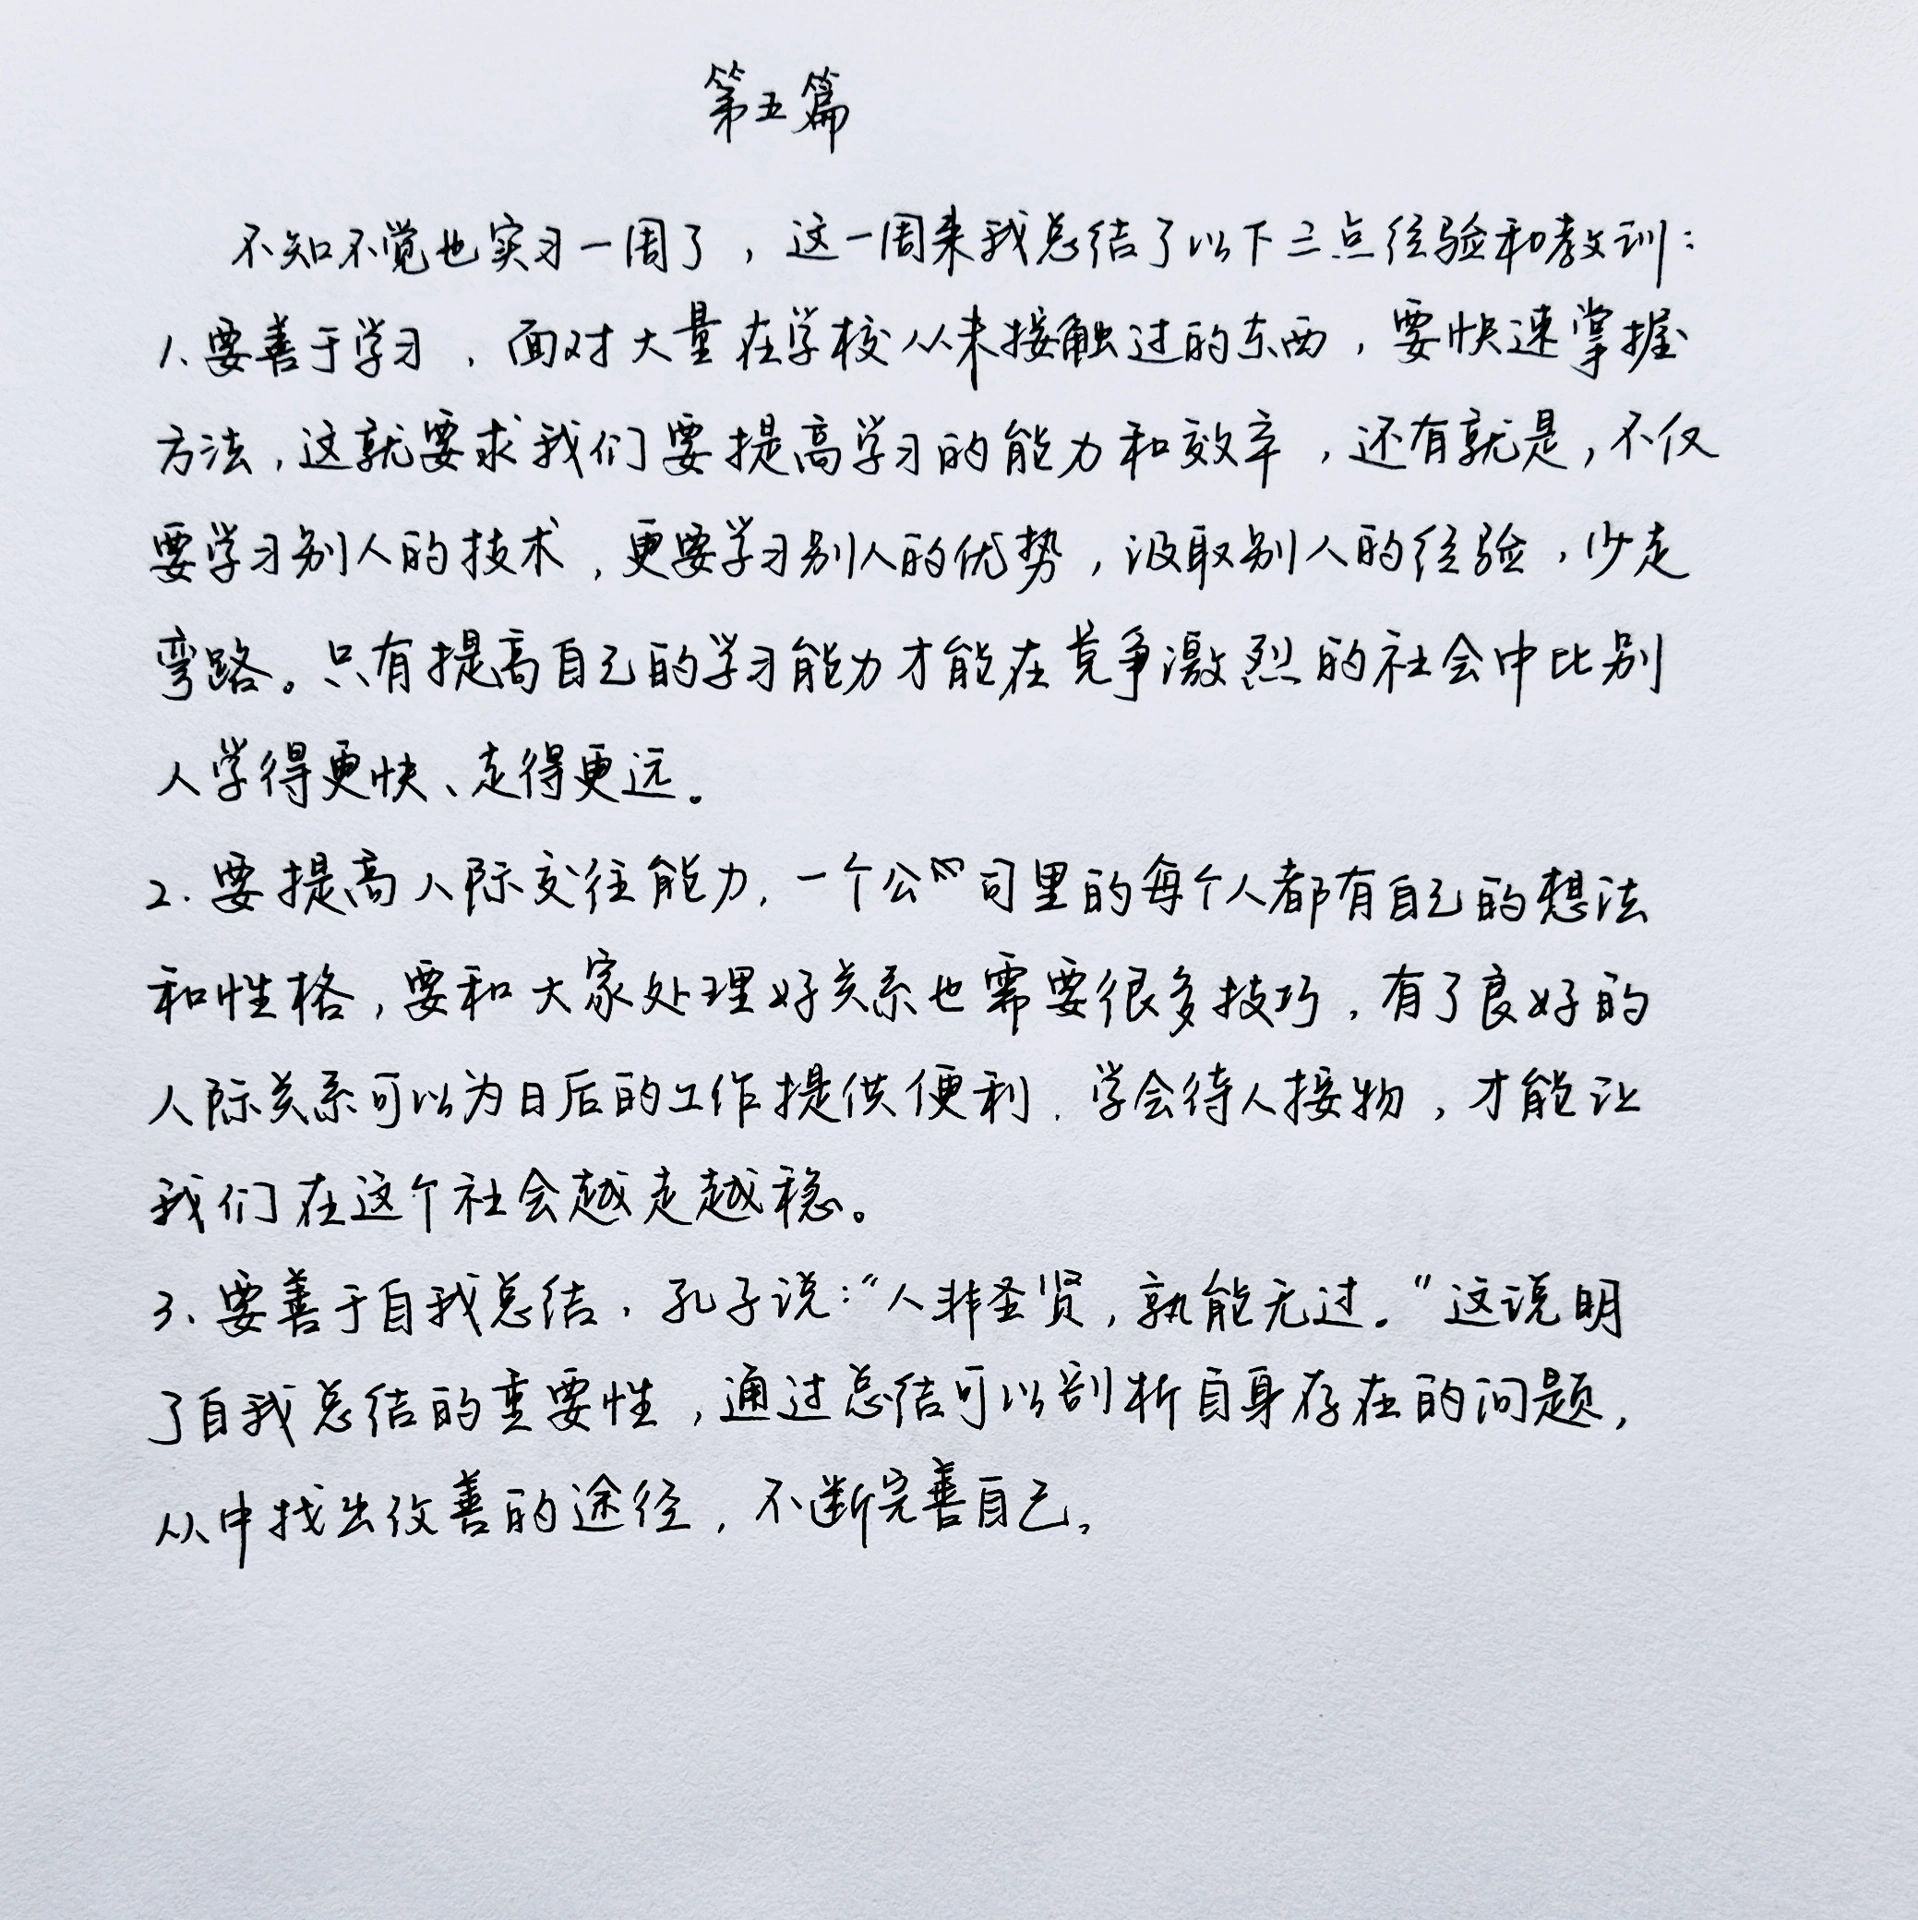 第五篇
不知不觉也实习一周了，这一周来我总结了以下三点经验和教训：
1.要善于学习，面对大量在学校从未接触过的东西，要快速掌握
方法，这就要求我们要提高学习的能力和效率，还有就是，不仅
要学习别人的技术，更要学习别人的优势，汲取别人的经验，少走
弯路。只有提高自己的学习能力才能在竞争激烈的社会中比别
人学得更快、走得更远。
2.要提高人际交往能力，一个公司里的每个人都有自己的想法
和性格，要和大家处理好关系也需要很多技巧，有了良好的
人际关系可以为日后的工作提供便利，学会待人接物，才能让
我们在这个社会越走越稳。
3、要善于自我总结，孔子说：“人非圣贤，孰能无过。”这说明
了自我总结的重要性，通过总结可以剖析自身存在的问题，
从中找出改善的途径，不断完善自己。